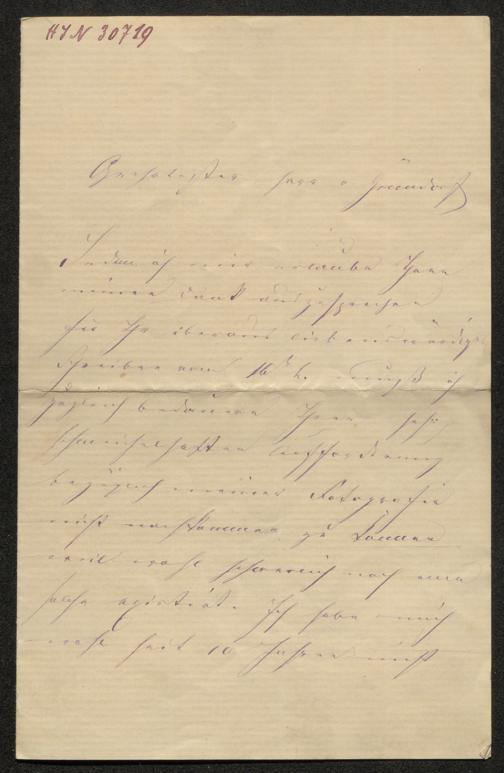 HIN 30719
Geehrtester Herr v Gründorf
Indem ich mir erlaube Ihnen
meinen Dank auszusprechen
für Ihr überaus liebenswürdiges
Schreiben vom 16t h. muß ich
zugleich bedauern Ihrer sehr
schmeichelhaften Aufforderung
bezüglich meiner Fotografie
nicht nachkommen zu können
weil wohl schwerlich noch eine
solche existirt. Ich habe mich
wohl seit 10 Jahren nicht